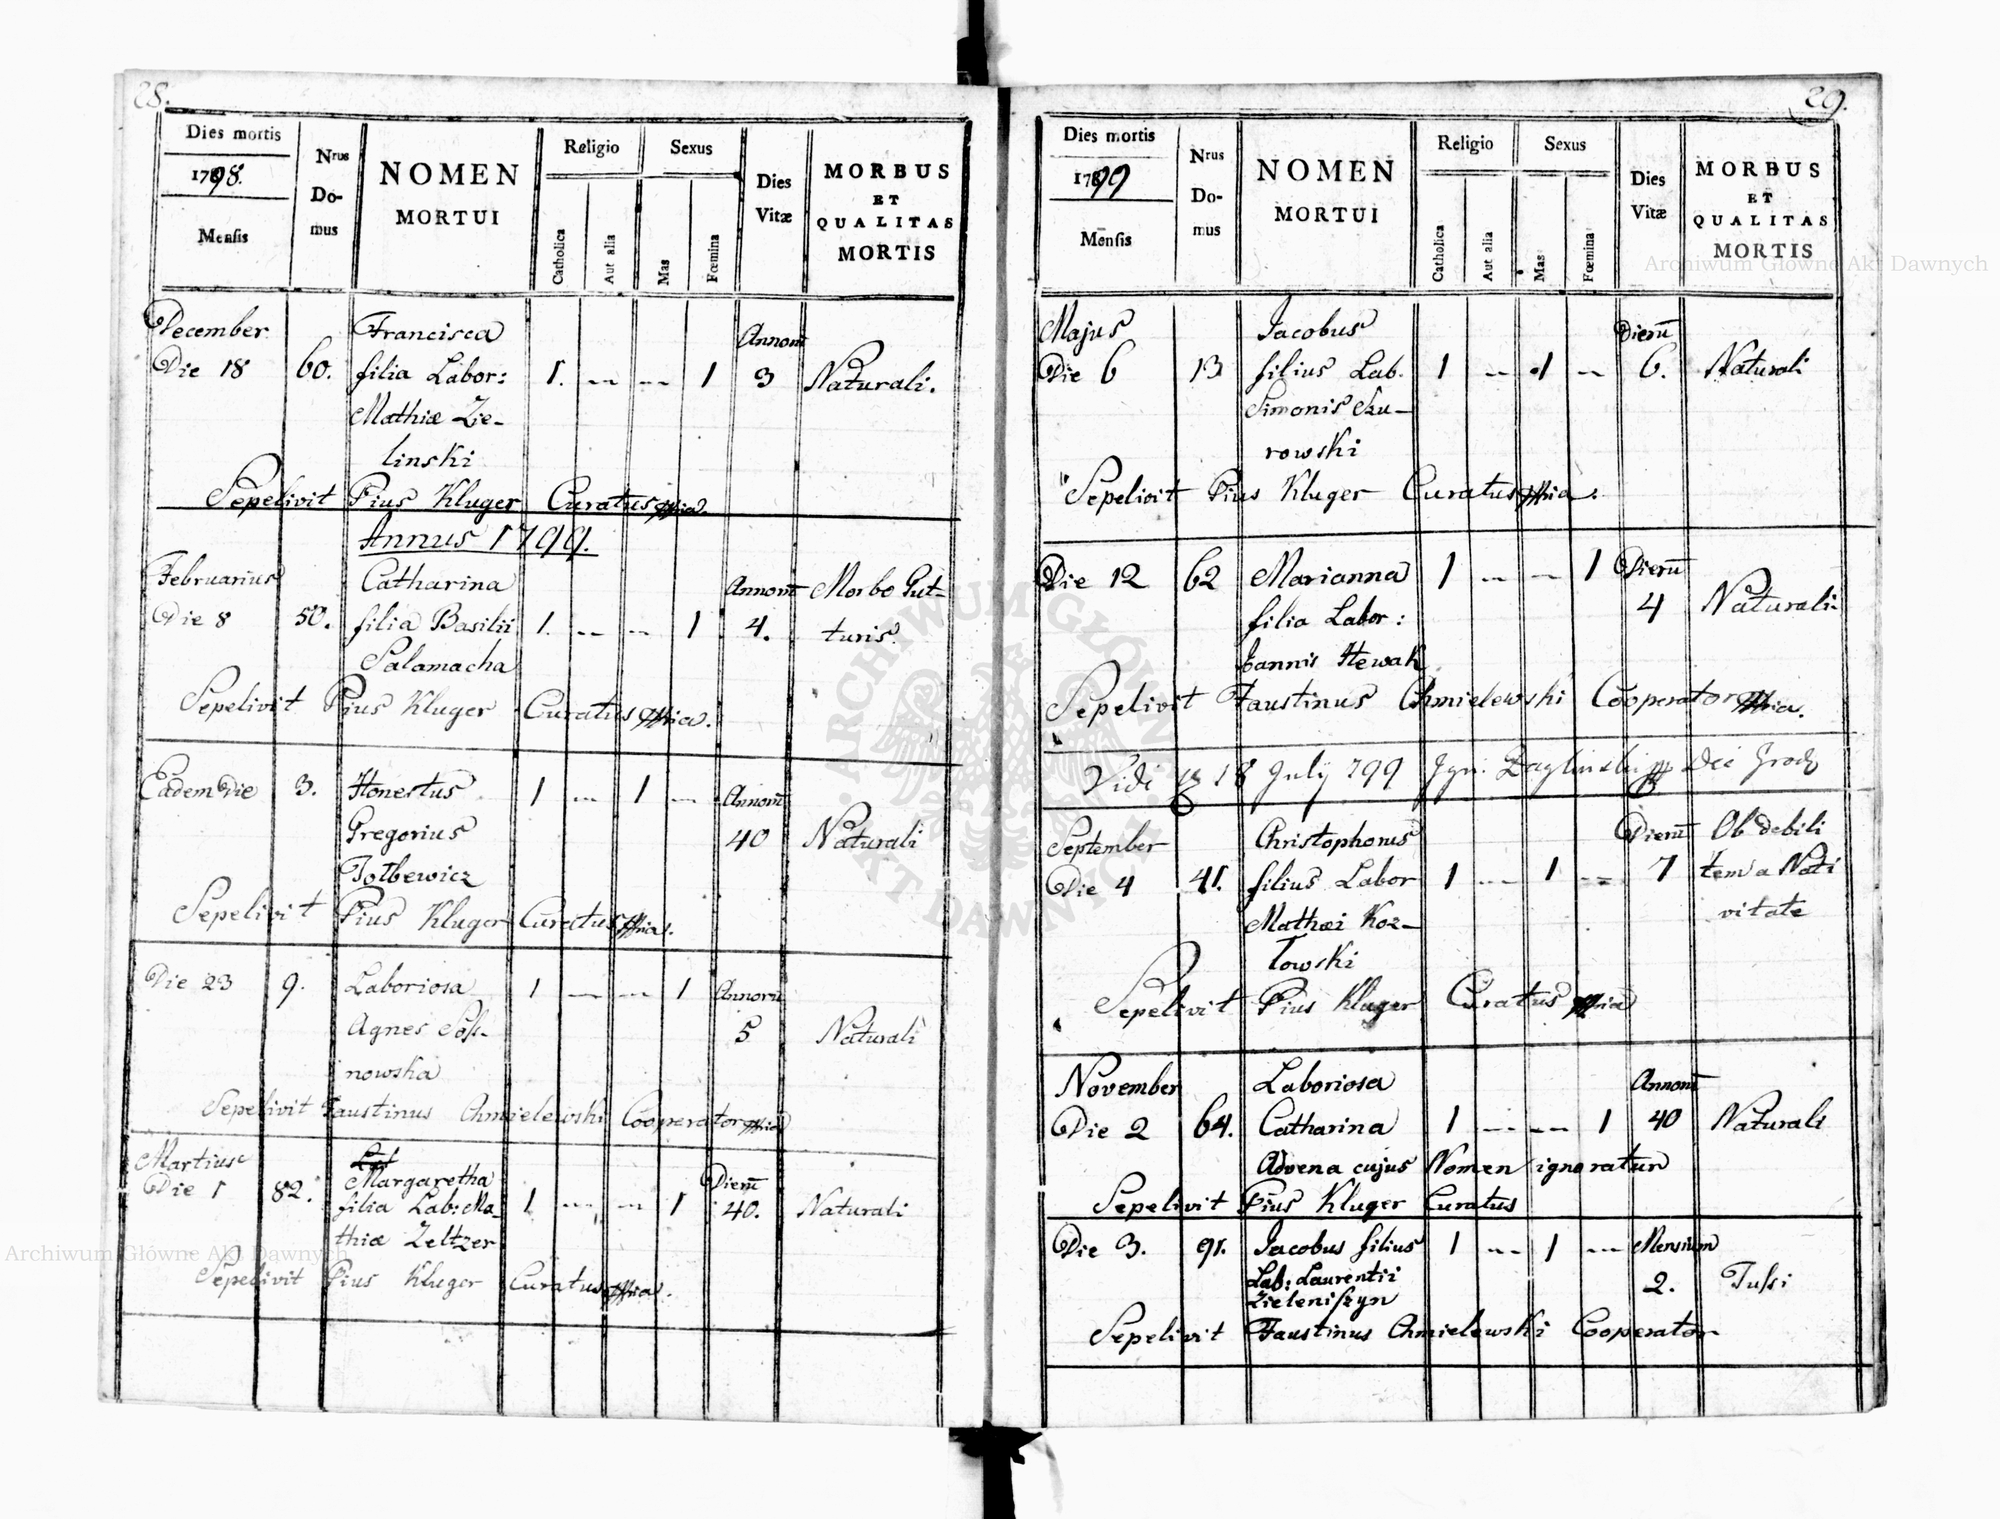 28.
Dies mortis
1798.
Mensis
Nrus Do- mus
NOMEN
MORTUI
Religio
Catholica
Aut alia
Sexus
Mas
Fœmina
Dies
Vitæ
MORBUS
ET
QUALITAS
MORTIS
December Francisca Annorū
Die 18 60. filia Labor: 1. -- -- 1 3 Naturali.
Mathiæ Zie-
linski
Sepelivit Pius Kluger Curatus mpria.
Annus 1799.
Februarius Catharina Annorū Morbo Gut-
Die 8 50. filia Basilii 1. -- -- 1 4. turis.
Salamacha
Sepelivit Pius Kluger Curatus mpria.
Eadem Die 3. Honestus 1 -- 1 -- Annorū
Gregorius 40 Naturali
Tolbewicz
Sepelivit Pius Kluger Curatus mpria.
Die 23 9. Laboriosa 1 -- -- 1 Annorū
Agnes Soſ- 5 Naturali
nowska
Sepelivit Faustinus Chmielewski Cooperator mpria
Martius
Margaretha Dierū
Die 1 82. filia Lab: Ma- 1 -- -- 1 40. Naturali
thiæ Zeltzer
Sepelivit Pius Kluger Curatus mpria.
29.
Dies mortis
1799
Mensis
Nrus Do- mus
NOMEN
MORTUI
Religio
Catholica
Aut alia
Sexus
Mas
Fœmina
Dies
Vitæ
MORBUS
ET
QUALITAS
MORTIS
Majus Jacobus Dierū
Die 6 13 filius Lab. 1 -- 1 -- 6. Naturali
Simonis Sku-
rowski
Sepelivit Pius Kluger Curatus mpria.
Die 12 62 Marianna 1 -- -- 1 Dierū
filia Labor: 4 Naturali
Joannis Hewak
Sepelivit Faustinus Chmielewski Cooperator mpria.
Vidi 18 July 799
September Christophorus Dierū Ob debili
Die 4 41. filius Labor 1 -- 1 -- 7 tem a Nati
Mathæi Koz- vitate
lowski
Sepelivit Pius Kluger Curatus mpria
November Laboriosa Annorū
Die 2 64. Catharina 1 -- -- 1 40 Naturali
Advena cujus Nomen ignoratur
Sepelivit Pius Kluger Curatus
Die 3. 91. Jacobus filius 1 -- 1 -- Mensium
Lab: Laurentii 2. Tuſsi
Zieleniſzyn
Sepelivit Faustinus Chmielewski Cooperator
Archiwum Główne Akt Dawnych
Archiwum Główne Akt Dawnych
ARCHIWUM GŁÓWNE
AKT DAWNYCH